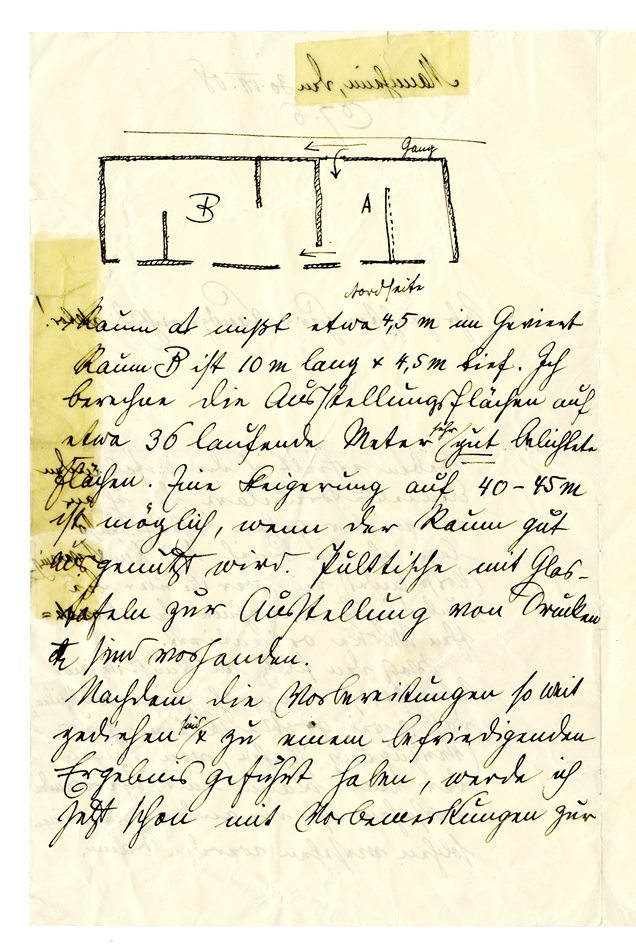 Gang
B
A
Nordseite
Raum A mißt etwa 4,5 m im Geviert
Raum B ist 10 m lang & 4,5 m tief. Ich
berechne die Ausstellungsflächen auf
etwa 36 laufende Meter sehr gut belichtete
Flächen. Eine Steigerung auf 40–45 m
ist möglich, wenn der Raum gut
ausgenutzt wird. Pulttische mit Glas-
tafeln zur Ausstellung von Drucken
sind vorhanden.
Nachdem die Vorbereitungen so weit
gediehen sind & zu einem befriedigenden
Ergebnis geführt haben, werde ich
jetzt schon mit Vorbemerkungen zur